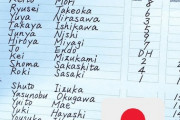 Mori 8
Ryusei Jakeoka 6
Yuya Nirasawa 3
Takaya Ishikawa 5
Junya Nishi 9
Hiroya Miyagi 7
Jo Endo DH
Kei Mizukami 2
Shoma Sakashita 4
Roki Sasaki 1
Shuto Iizuka
Yasunobu Okugawa
Yuito Mae
Yuki Hayashi
Yousuke